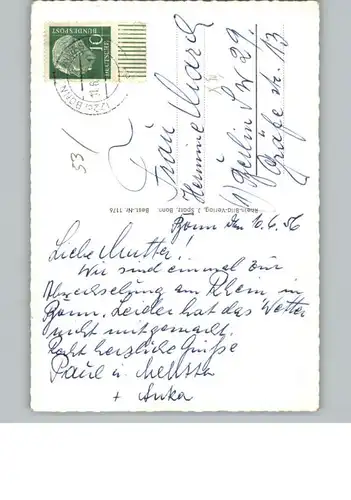 10
DEUTSCHE
BUNDESPOST
BONN
53
Frau
Hermine March
1) Berlin SW 29
Gräfe Str. 13
Rhein-Bild-Verlag, J. Spatz, Bonn Best.-Nr. 1176
Bonn den 10.6.56
Liebe Mutter!
Wir sind einmal zur
Abwechselung am Rhein in
Bonn. Leider hat das Wetter
nicht mitgemacht.
Recht herzliche Grüße
Paul u.
+ Anka